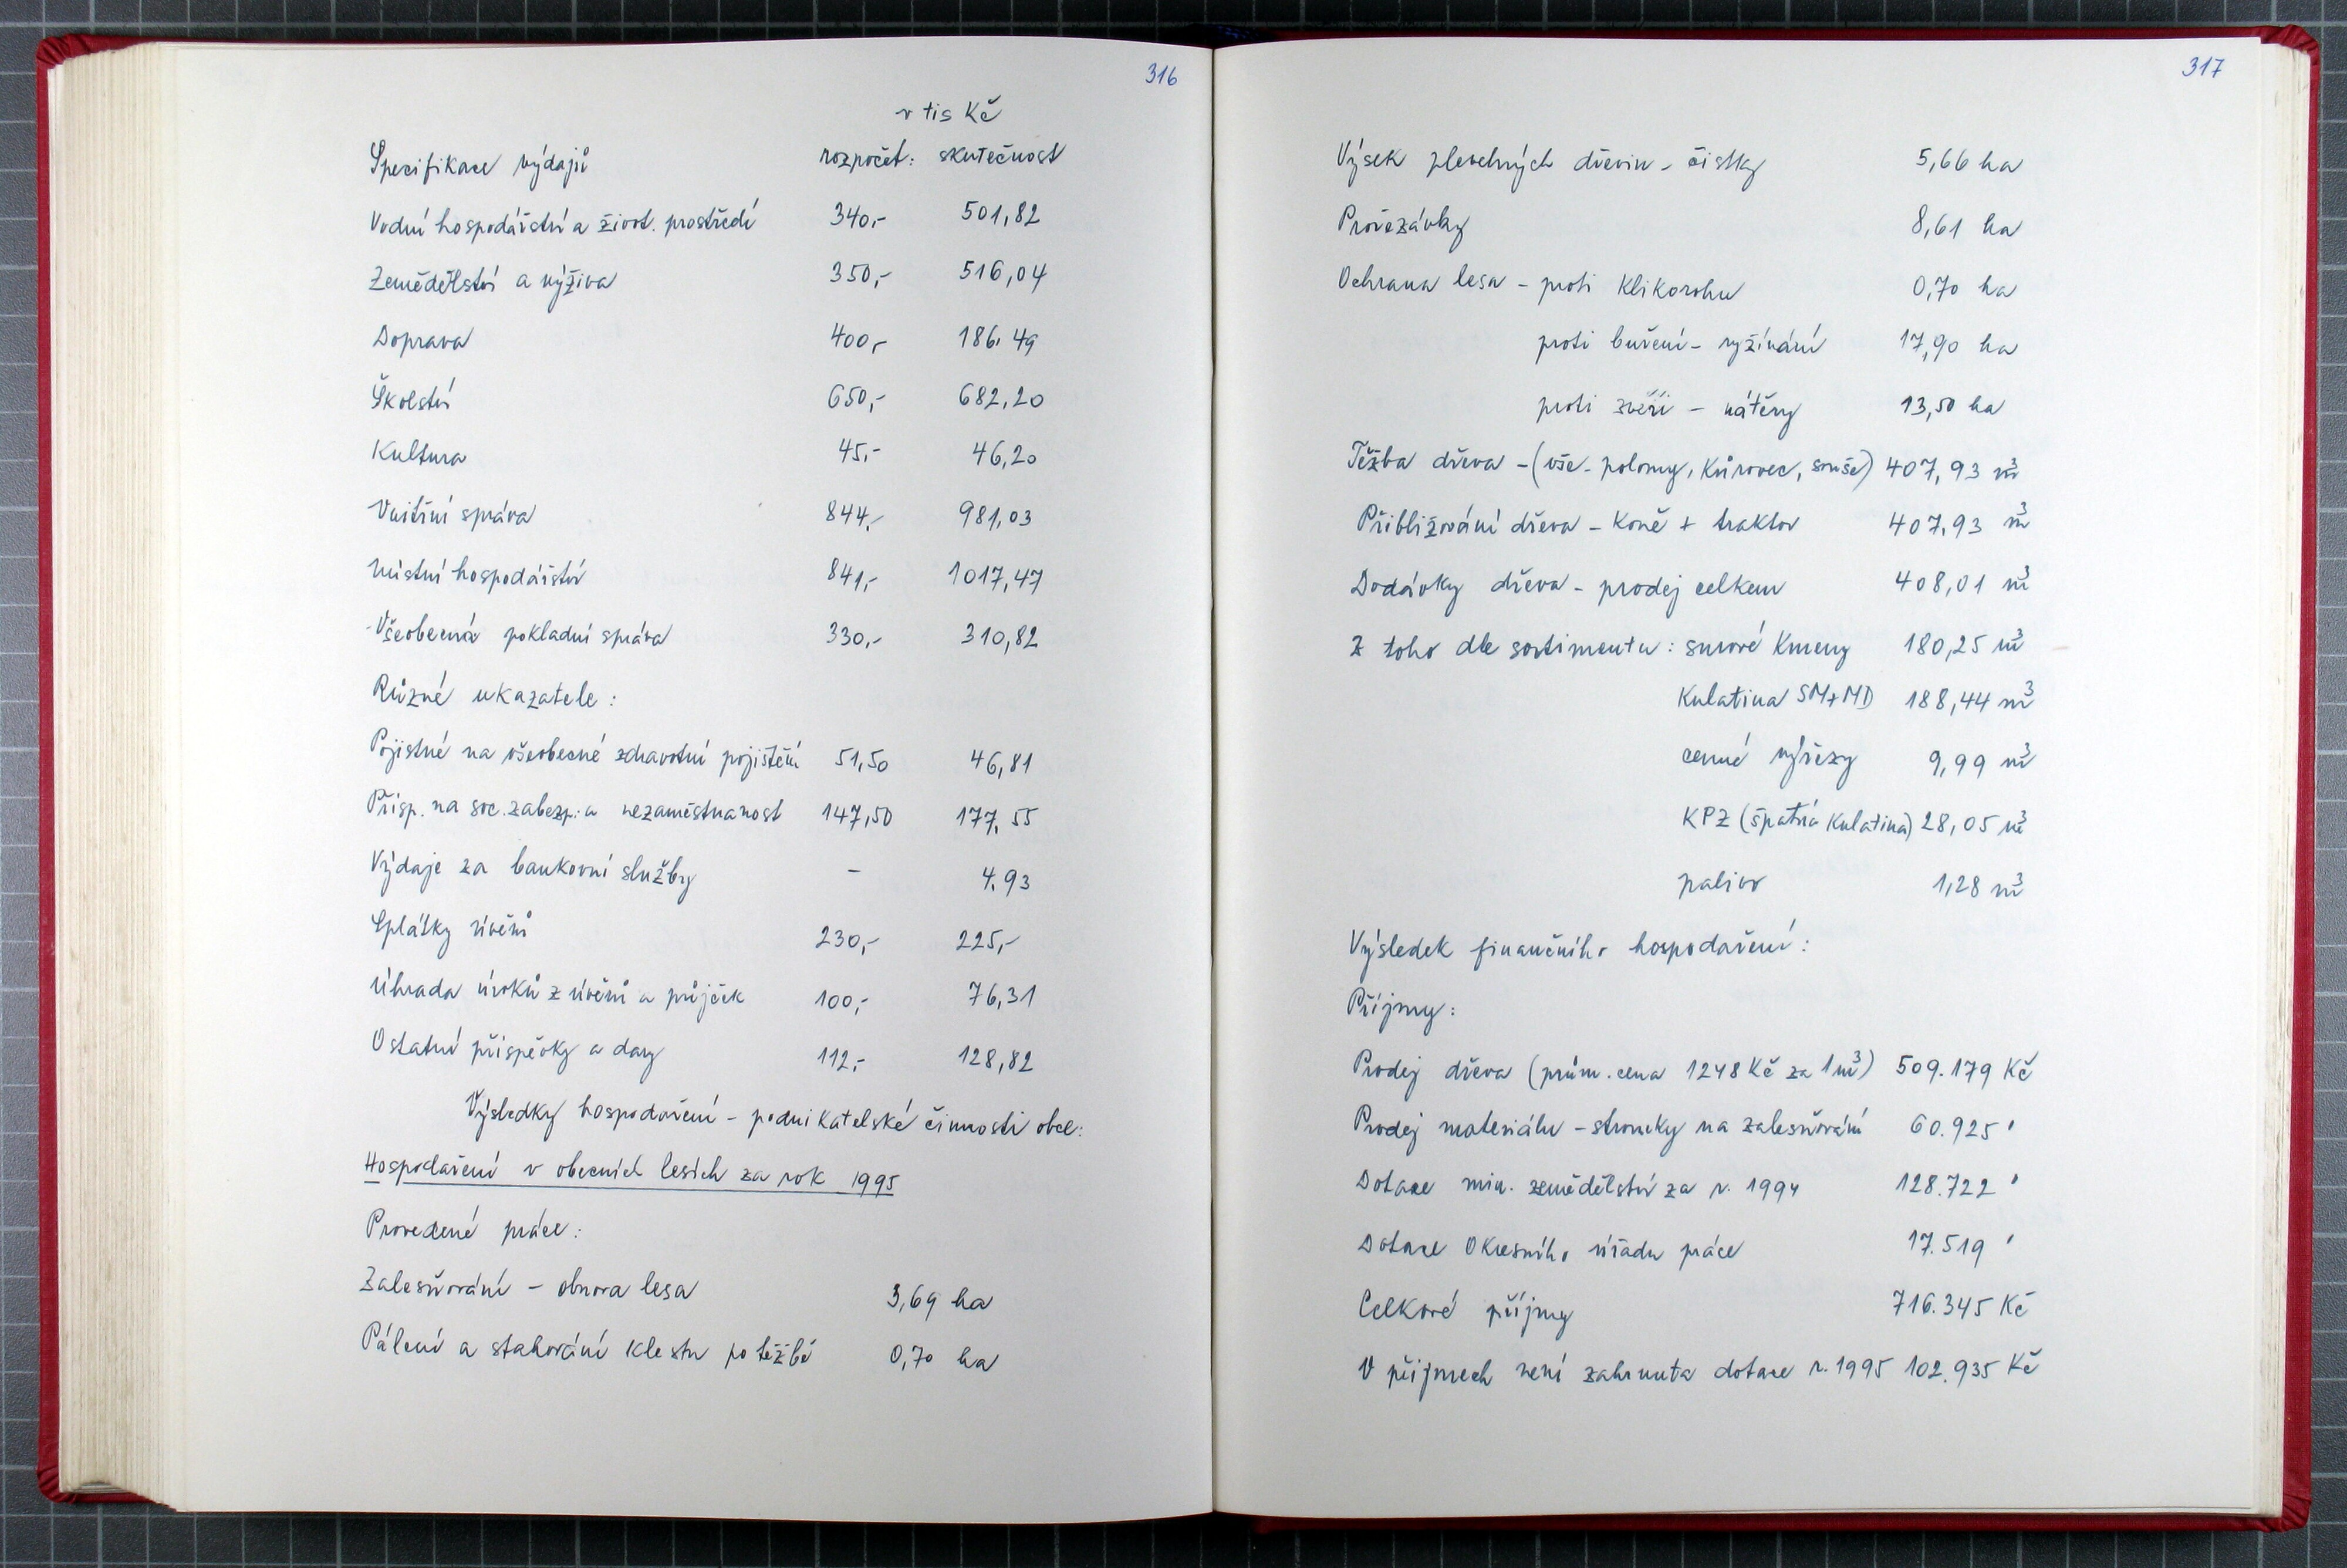 316
v tis Kč
Specifikace výdajů rozpočet: skutečnost
Vodní hospodářství a život. prostředí 340,- 501,82
Zemědělství a výživa 350,- 516,04
Doprava 400,- 186,49
Školství 650,- 682,20
Kultura 45,- 46,20
Vnitřní správa 844,- 981,03
Místní hospodářství 841,- 1017,47
Všeobecná pokladní správa 330,- 310,82
Různé ukazatele:
Pojistné na všeobecné zdravotní pojištění 51,50 46,81
Přísp. na soc. zabezp. a nezaměstnanost 147,50 177,55
Výdaje za bankovní služby - 4,93
Splátky úvěrů 230,- 225,-
Úhrada úroků z úvěrů a půjček 100,- 76,31
Ostatní příspěvky a dary 112,- 128,82
Výsledky hospodaření - podnikatelské činnosti obce:
Hospodaření v obecních lesích za rok 1995
Provedené práce:
Zalesňování - obnova lesa 3,69 ha
Pálení a stahování klestu po těžbě 0,70 ha
317
Výsek plevelných dřevin - čistky 5,66 ha
Prořezávky 8,61 ha
Ochrana lesa - proti klikorohu 0,70 ha
proti buřeni - vyžínání 17,90 ha
proti zvěři - nátěry 13,50 ha
Těžba dřeva - (vše - polomy, kůrovec, souše) 407,93 m³
Přibližování dřeva - koně + traktor 407,93 m³
Dodávky dřeva - prodej celkem 408,01 m³
Z toho dle sortimentu: surové kmeny 180,25 m³
Kulatina SM+MD 188,44 m³
cenné výřezy 9,99 m³
KPZ (špatná kulatina) 28,05 m³
palivo 1,28 m³
Výsledek finančního hospodaření:
Příjmy:
Prodej dřeva (prům. cena 1248 Kč za 1 m³) 509.179 Kč
Prodej materiálu - stromky na zalesňování 60.925 '
Dotace min. zemědělství za r. 1994 128.722 '
Dotace Okresního úřadu práce 17.519 '
Celkové příjmy 716.345 Kč
V příjmech není zahrnuta dotace r. 1995 102.935 Kč